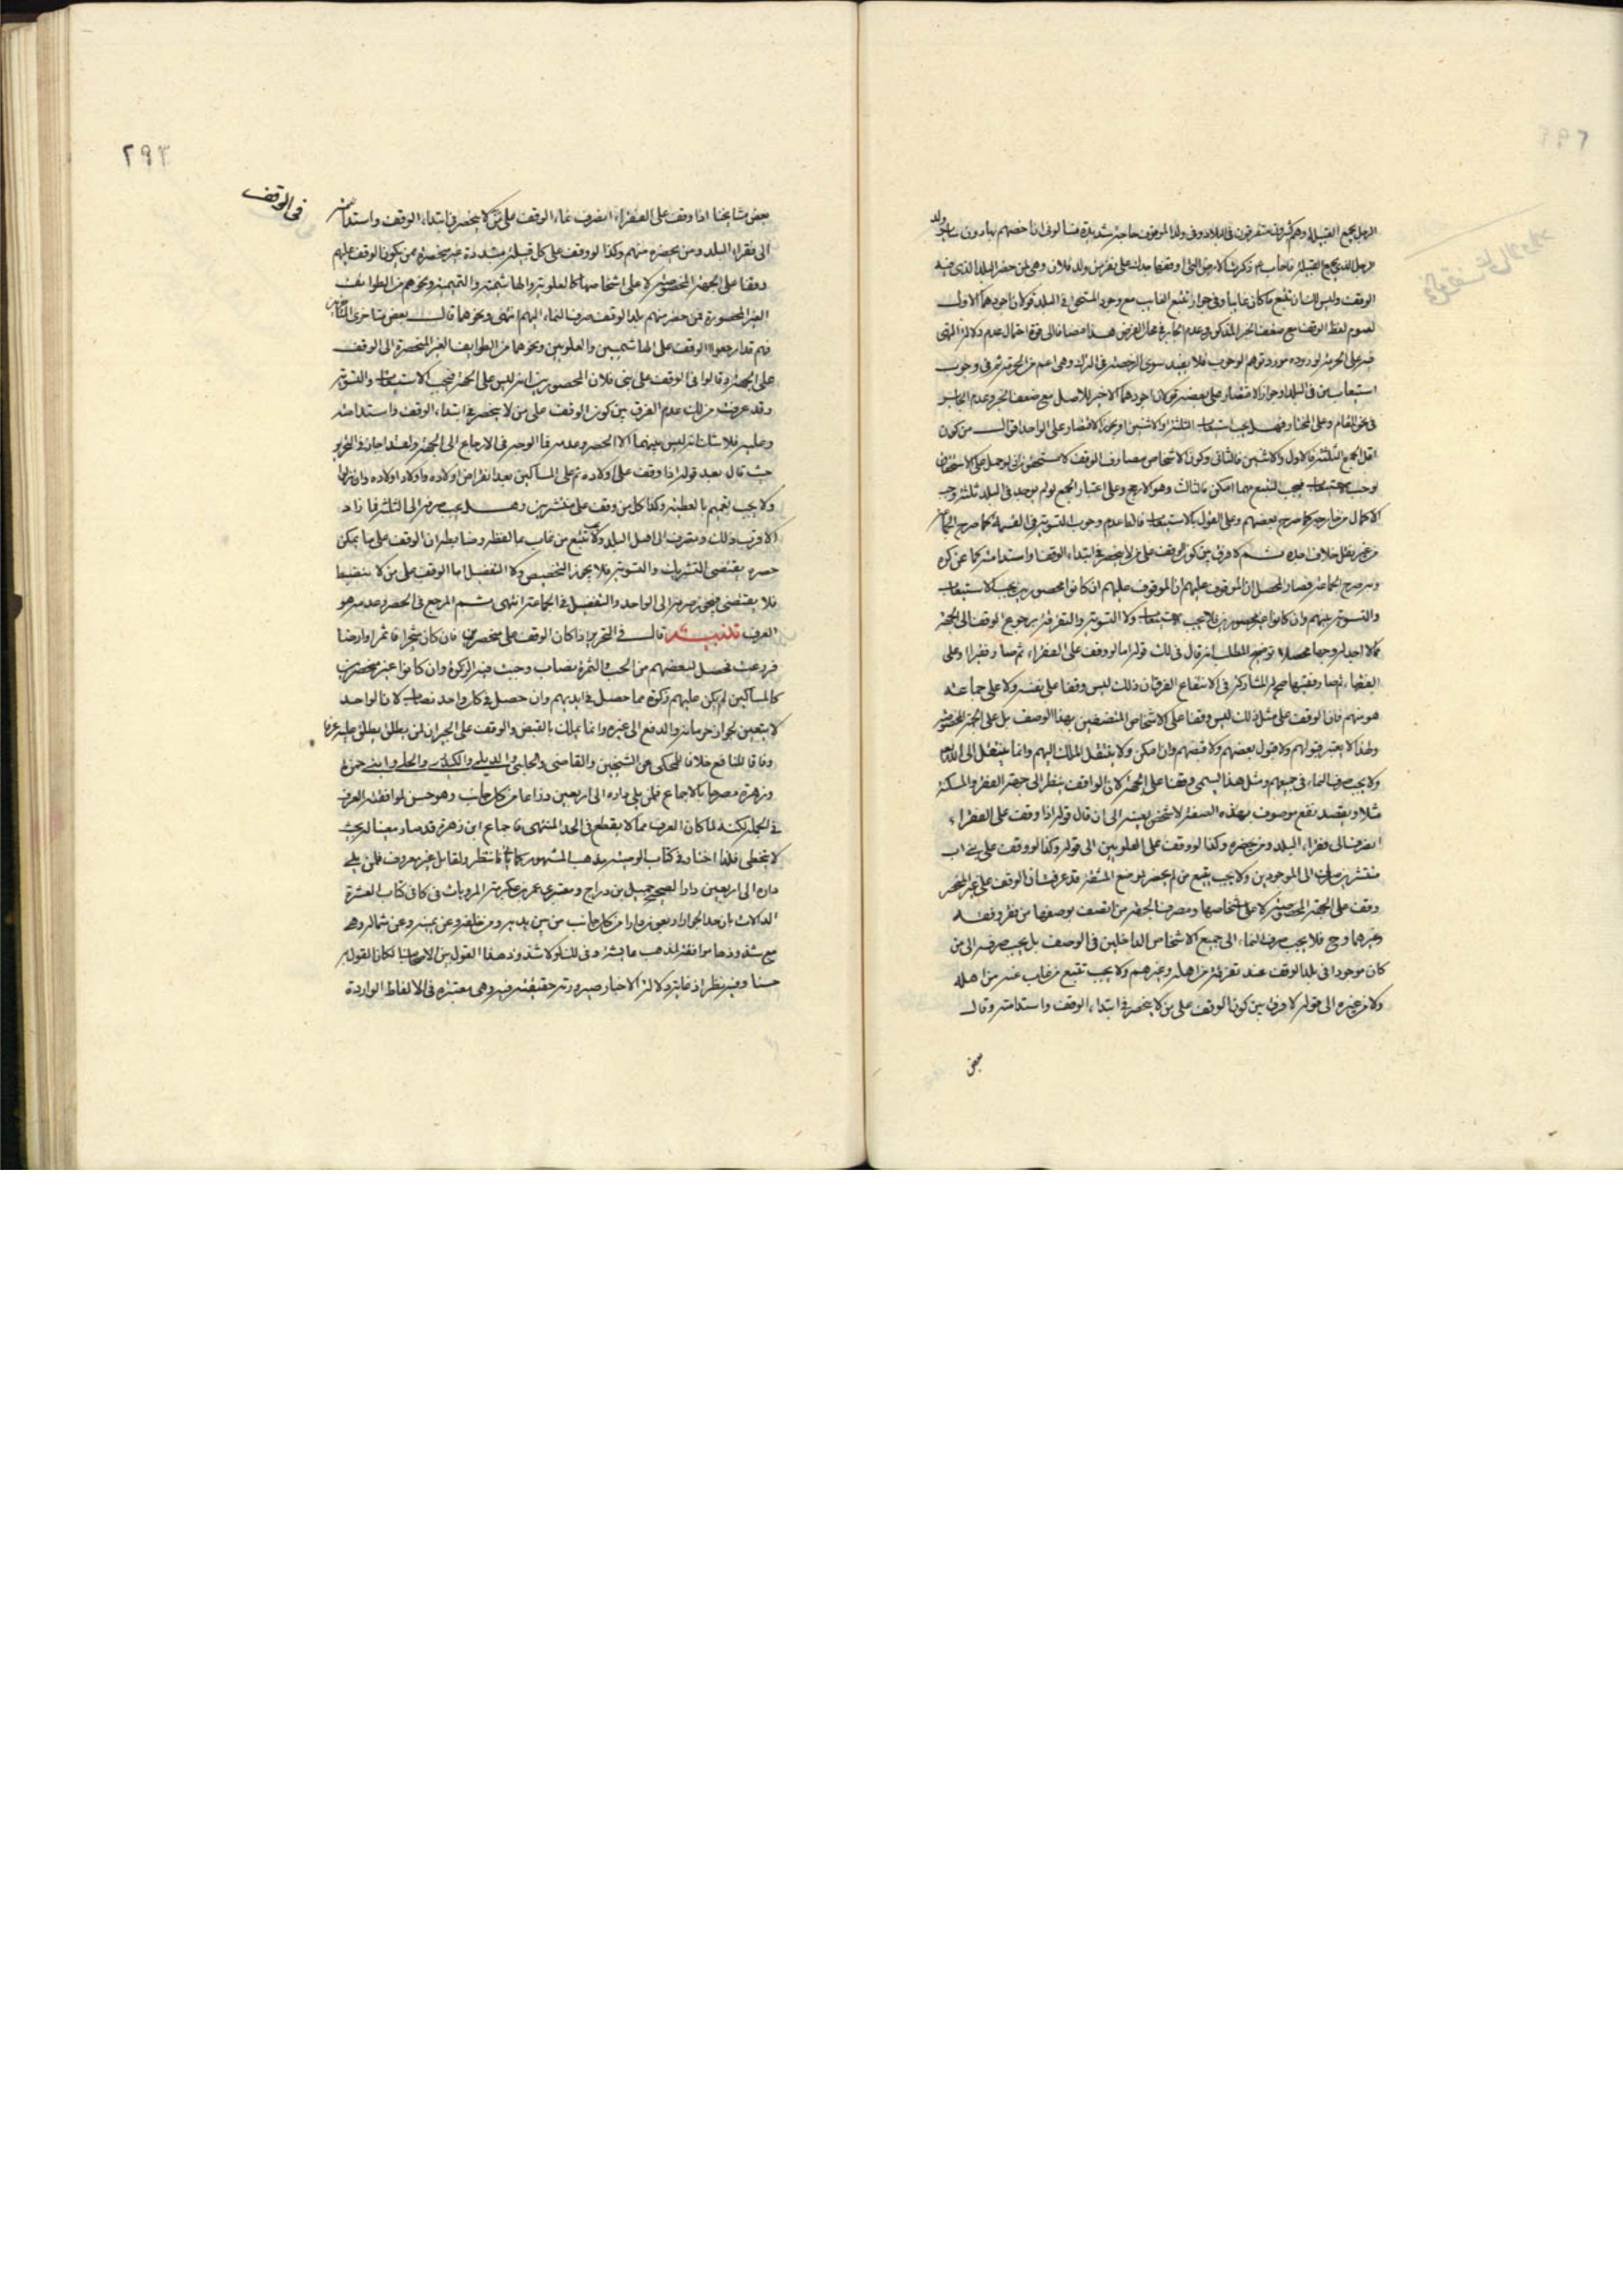 الرجل يجمع القبيلة وهم كثيرون متفرقون في البلاد وفي ولد الموقف حاجة شديدة
الرجل الذي يجمع القبيلة فاجاب ع ذكرت الارض التي اوقفها جدك على فقراء ولد فلان وهي لمن حضر البلد الذي فيه
الوقف وليس لك ان تتبع ما كان غايبا وفي جواز تتبع الغايب مع وجود المستحق في البلد قولان اجودهما الاول
لعموم لفظ الوقف مع ضعف الخبر المذكور وعدم الجابر في محل الفرض هذا مضافا الى قوة احتمال عدم دلالة النهي
فيه على الحرمة لوروده مورد توهم الوجوب فلا يفيد سوى الرخصة في الترك وهي اعم من الحرمة ثم في وجوب
استيعاب من في البلد او جواز الاقتصار على بعضهم قولان اجودهما الاخير للاصل مع ضعف الخبر وعدم الجابر
في نحو المقام وعلى المختار فهل يجب استيعاب الثلثة او الاثنين او يجوز الاقتصار على الواحد اقوال من كون
اقل الجمع الثلثة فالاول والاثنين فالثاني وكون الاشخاص مصارف الوقف لا مستحقين اذ لو حمل على الاستحقاق
لوجب الاستيعاب فيجب التتبع مهما امكن فالثالث وهو الارجح وعلى اعتبار الجمع لو لم يوجد في البلد ثلثة وجب
الاكمال من خارجه كما صرح بعضهم وعلى القول بالاستيعاب فالظاهر عدم وجوب التسوية في القسمة كما صرح الجماعة
من غير نقل خلاف اجده ثم لا فرق بين كون الوقف على من لا ينحصر في ابتداء الوقف واستدامته كما عن كره
وبه صرح الجماعة فصار المحصل ان الموقوف عليهم ان كانوا محصورين يجب الاستيعاب
والتسوية بينهم وان كانوا غير محصورين فلا يجب الاستيعاب ولا التسوية والتفرقة برجوع الوقف الى الجهة
مما لا اجد له وجها محصلا توضيح المطلب انه قال في لك قوله اما لو وقف على الفقراء ثم صار فقيرا او على
الفقهاء ثم صار فقيها صح له المشاركة في الانتفاع الفرق ان ذلك ليس وقفا على نفسه ولا على جماعة
هو منهم فان الوقف على مثل ذلك ليس وقفا على الاشخاص المتصفين بهذا الوصف بل على الجهة المخصوصة
ولهذا لا يعتبر قبولهم ولا قبول بعضهم ولا قبضهم وان امكن ولا ينتقل الملك اليهم وانما ينتقل الى الله تعالى
ولا يجب صرف النماء في جميعهم ومثل هذا يسمى وقفا على الجهة لان الواقف ينظر الى جهة الفقر والمسكنة
مثلا ويقصد نفع موصوف بهذه الصفة لا شخص بعينه الى ان قال قوله اذا وقف على الفقراء
انصرف الى فقراء البلد ومن يحضره وكذا لو وقف على العلويين الى قوله وكذا لو وقف على بني اب
منتشرين صرف الى الموجودين ولا يجب تتبع من لم يحضر لموضع المشقة قد عرفت ان الوقف على غير المنحصر
وقف على الجهة المخصوصة لا على اشخاصها ومصرف الجهة من اتصف بوصفها من فقر وفقه
وغيرهما وح فلا يجب صرف النماء الى جميع الاشخاص الداخلين في الوصف بل يجب صرفه الى من
كان موجودا في بلد الوقف عند تفرقته من اهله وغيرهم ولا يجب تتبع من غاب عنه من اهله
ولا من غيره الى قوله لا فرق بين كون الوقف على من لا ينحصر في ابتداء الوقف واستدامته وقال
بعض
٢٩٣
في الوقف
بعض مشايخنا اذا وقف على الفقراء انصرف نماء الوقف على من لا ينحصر في ابتداء الوقف واستدامته
الى فقراء البلد ومن يحضره منهم وكذا لو وقف على كل قبيلة متبددة غير منحصرة ممن يكون الوقف عليهم
وقفا على الجهة المخصوصة لا على اشخاصها كالعلوية والهاشمية والتميمية ونحوهم من الطوائف
الغير المحصورة فمن حضر منهم بلد الوقف صرف النماء اليهم انتهى ونحوهما قال بعض متاخري المتاخرين
فهم قد ارجعوا الوقف على الهاشميين والعلويين ونحوهما من الطوايف الغير المنحصرة الى الوقف
على الجهة وقالوا في الوقف على بني فلان المحصورين انه ليس على الجهة فيجب الاستيعاب والتسوية
وقد عرفت من لك عدم الفرق بين كون الوقف على من لا ينحصر في ابتداء الوقف واستدامته
وعليه فلا شك انه ليس بينهما الا الحصر وعدمه فما الوجه في الارجاع الى الجهة ولقد اجاد في التحرير
حيث قال بعد قوله اذا وقف على اولاده ثم على المساكين بعد انقراض اولاده واولاد اولاده وان نزلوا
ولا يجب تعميمهم بالعطية وكذا كل من وقف على منتشرين وهل يجب صرفه الى الثلثة فما زاد
الاقرب ذلك ويصرف الى اهل البلد ولا يجب تتبع من غاب عنه والضابط ان الوقف على ما يمكن
حصره يقتضي التشريك والتسوية فلا يجوز التخصيص ولا التفضيل اما الوقف على من لا ينضبط
فلا يقتضي فيجوز صرفه الى الواحد والتفضيل في الجماعة انتهى ثم المرجع في الحصر وعدمه هو
العرف تذنيب قال في التحرير اذا كان الوقف على منحصرين فان كان شجرا فاثمر او ارضا
فزرعت فحصل لبعضهم من الحب والثمرة نصاب وجبت فيه الزكوة وان كانوا غير منحصرين
كالمساكين لم يكن عليهم زكوة مما حصل في ايديهم وان حصل في كل واحد نصاب لانه الواحد
لا يتعين لجواز حرمانه والدفع الى غيره وانما يملك بالقبض والوقف على الجيران لمن يطلق عليه عرفا
وفاقا للنافع خلافا للمحكي عن الشيخين والقاضي والحلبي والديلمي والكيدري والحلي وابني حمزة
وزهرة مصرحا بالاجماع فلمن يلي داره الى اربعين ذراعا من كل جانب وهو حسن لموافقته العرف
في الجملة لكنه لما كان العرف مما لا يقطع في الحد المنتهى فاجماع ابن زهرة قد صار معينا له بحيث
لا يتخطى فلذا اختار في كتاب الوصية مذهب المشهور كما ياتي فانتظر ولقائل غير معروف فلمن يلي
داره الى اربعين دارا لصحيح جميل بن دراج ومعتبر عمرو بن عكرمة المرويات في كافي كتاب العشرة
الدالات بان حد الجوار اربعون دارا من كل جانب من بين يديه ومن خلفه وعن يمينه وعن شماله وهي
مع شذوذها موافقة لمذهب عايشة وفي لك لولا شذوذ هذا القول بين الاصحاب لكان القول به
حسنا وفيه نظر اذ غاية دلالة الاخبار صيرورته حقيقة فيه وهي معتبرة في الالفاظ الواردة